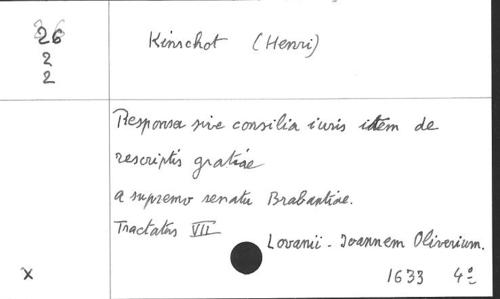 26
2
2
Kinschot (Henri)
Responsa sive consilia iuris item de
rescriptis gratiae
a supremo senatu Brabantiae.
Tractatus VII
Lovanii - Joannem Oliverium.
1633 4º
x